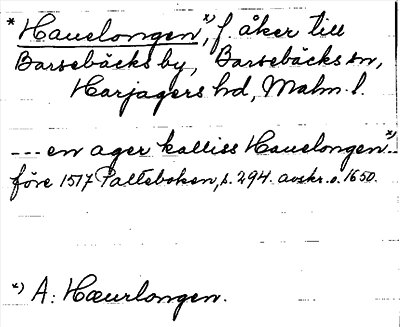 * Hauelongen *), f. åker till
Barsebäcks by, Barsebäcks sn,
Harjagers hd, Malm. l.
--- en ager kalliss Hauelongen *) --
före 1517 Palteboken, s. 294. avskr. o. 1650.
*) A: Hæurlongen.